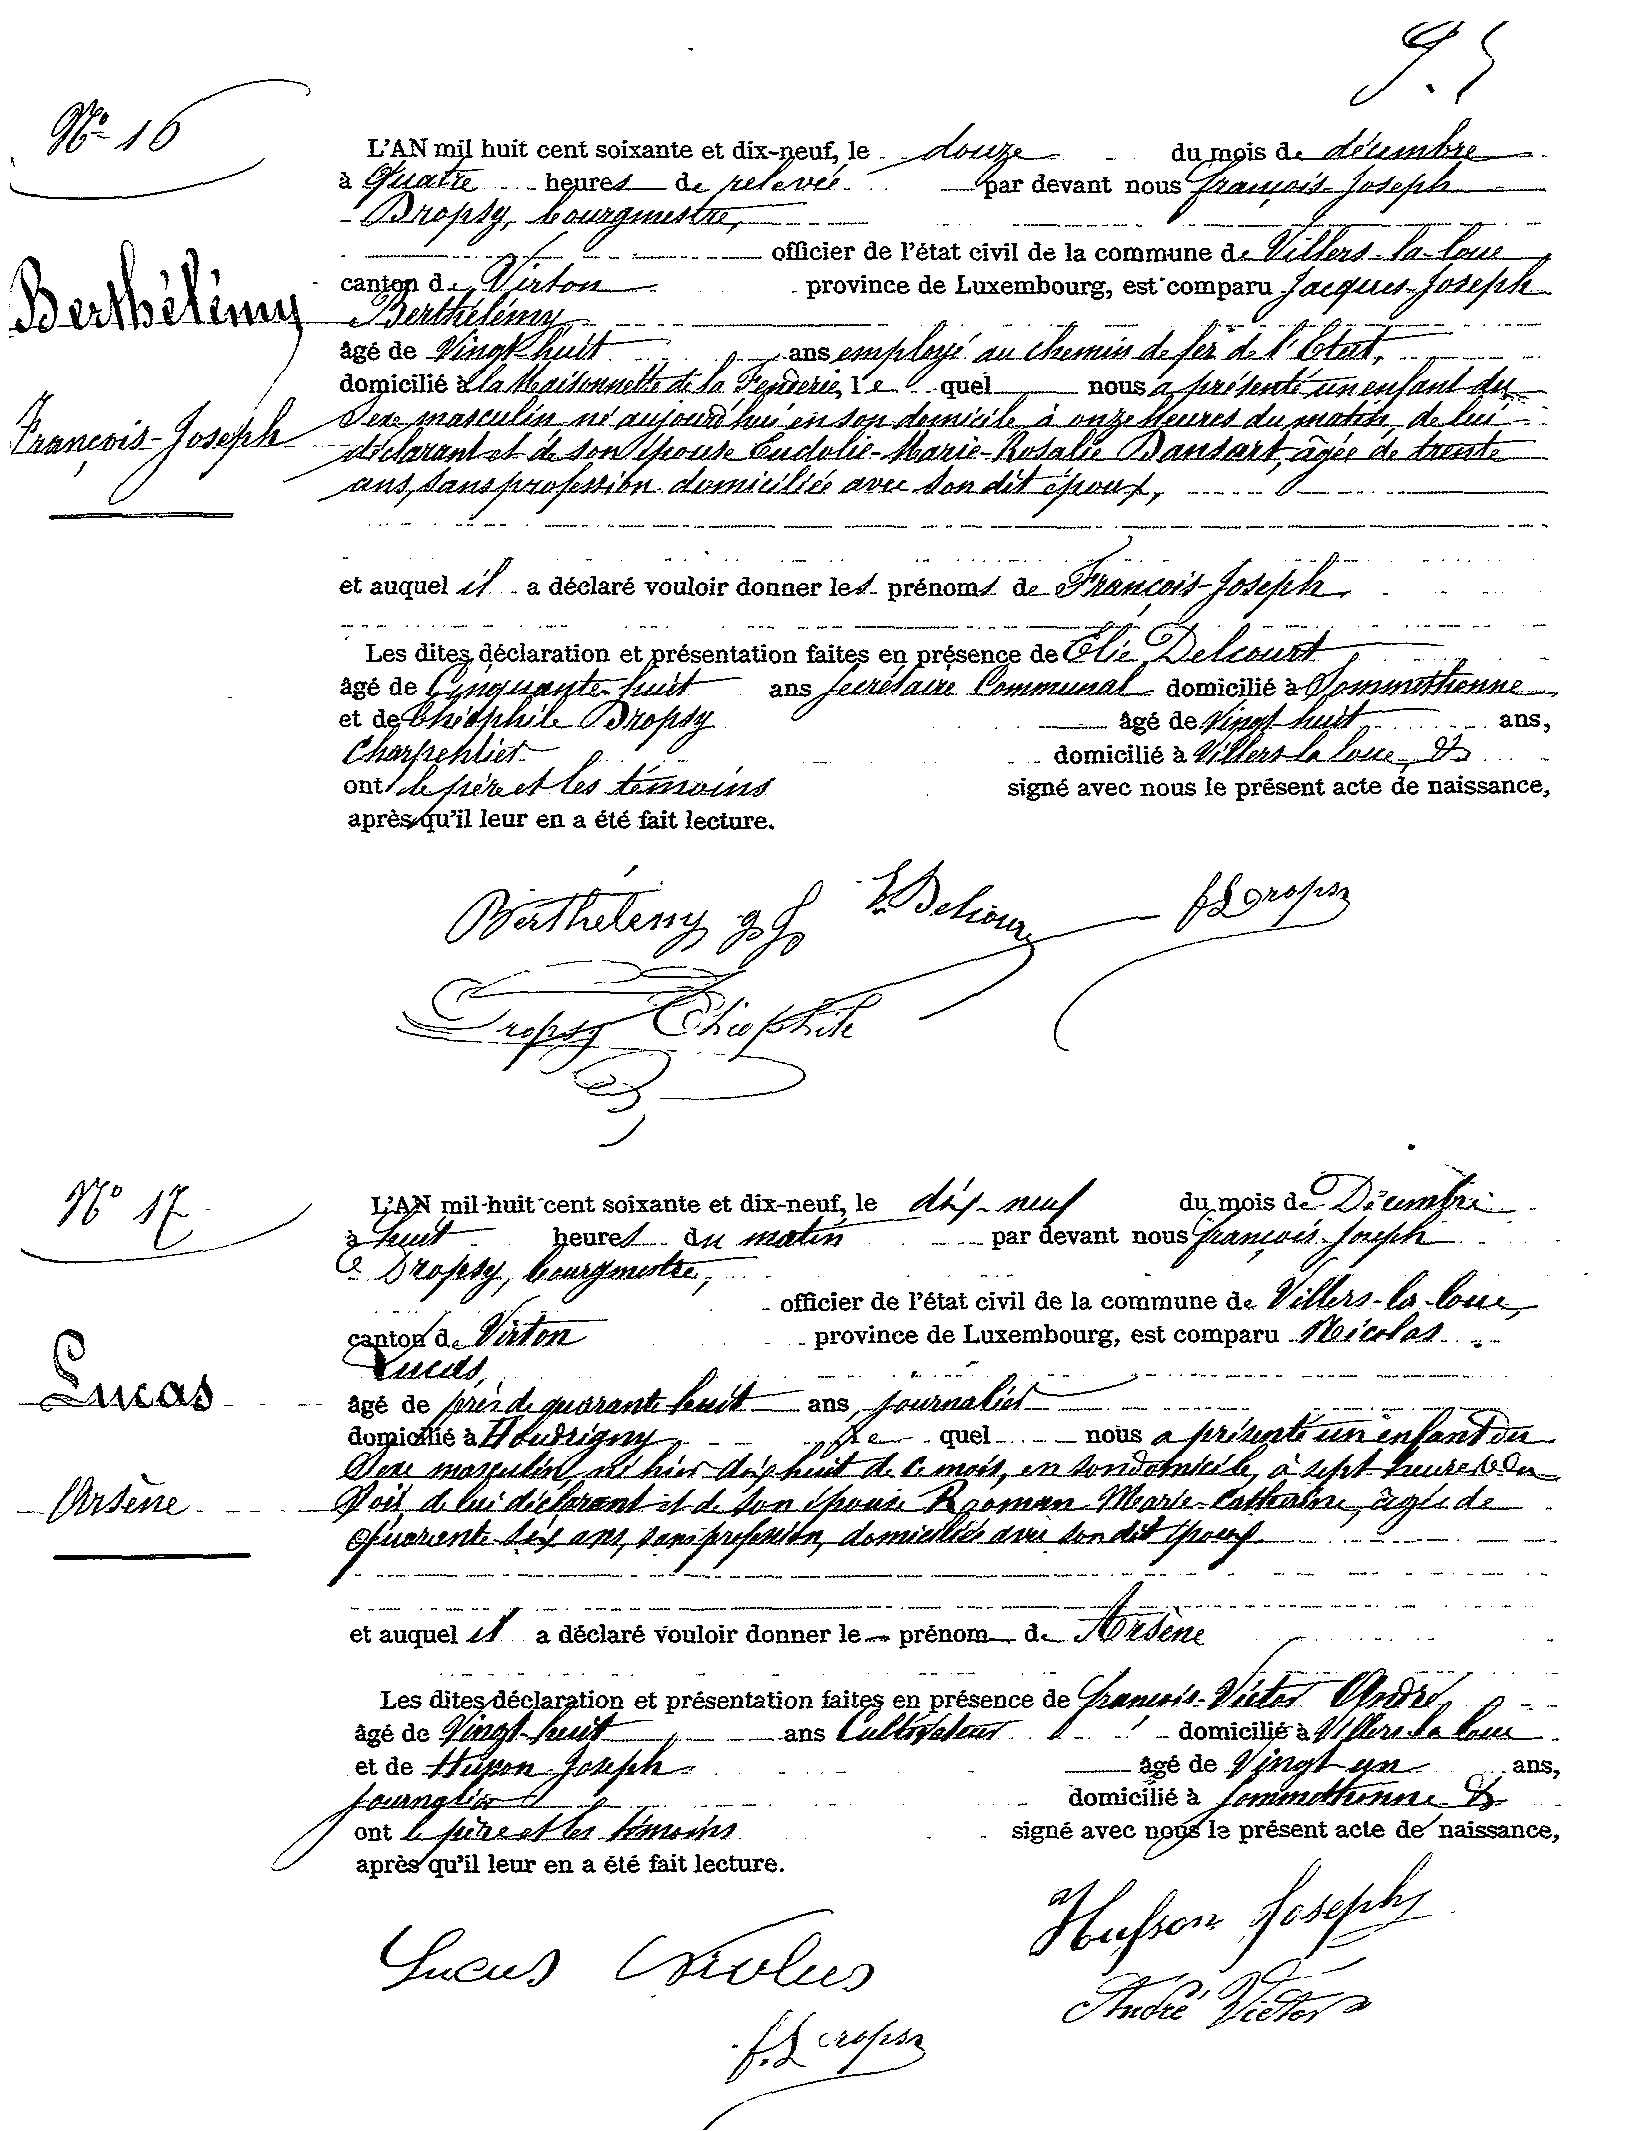 N° 16
L'AN mil huit cent soixante et dix-neuf, le douze du mois de décembre
à quatre heures de relevée par devant nous françois-Joseph
Dropsy, bourgmestre,
officier de l'état civil de la commune de Villers-la-loue
canton de Virton province de Luxembourg, est comparu Jacques-Joseph
Berthélémy
Berthélémy
âgé de Vingt-huit ans employé au chemin de fer de l'Etat,
domicilié à la Maisonnette de la Fenderie, le quel nous a présenté un enfant du
François-Joseph
Sexe masculin né aujourd'hui en son domicile à onze heures du matin, de lui
déclarant et de son épouse Eudolie-Marie-Rosalie Dansart, âgée de trente
ans, sans profession domiciliée avec son dit époux,
et auquel il a déclaré vouloir donner les prénoms de François-Joseph
Les dites déclaration et présentation faites en présence de Elie Delcourt
âgé de Cinquante-huit ans Secrétaire Communal domicilié à Sommethonne
et de Théophile Dropsy âgé de Vingt huit ans,
Charpentier domicilié à Villers-la loue, &
ont le père et les témoins signé avec nous le présent acte de naissance,
après qu'il leur en a été fait lecture.
Berthélemy J. J. E. Delcour f Dropsy
Dropsy Théophile
N° 17
L'AN mil huit cent soixante et dix-neuf, le dix-neuf du mois de Décembre
à huit heures du matin par devant nous françois-Joseph
Dropsy, bourgmestre,
officier de l'état civil de la commune de Villers-la-loue,
canton de Virton province de Luxembourg, est comparu Nicolas
Lucas
Lucas,
âgé de près de quarante huit ans, journalier
domicilié à Houdrigny, le quel nous a présenté un enfant du
Sexe masculin, né hier dix huit de ce mois, en son domicile, à sept heures du
Arsène
Soir de lui déclarant et de son épouse Rooman Marie-Catherine, âgée de
quarente six ans, sans profession, domiciliée avec son dit époux
et auquel il a déclaré vouloir donner le prénom de Arsène
Les dites déclaration et présentation faites en présence de françois-Victor André
âgé de Vingt-huit ans Cultivateur domicilié à Villers-la loue
et de Husson Joseph âgé de Vingt un ans,
journalier domicilié à Sommethonne &
ont le père et les témoins signé avec nous le présent acte de naissance,
après qu'il leur en a été fait lecture.
Husson Joseph
Lucas Nicolas
André Victor
f. Dropsy